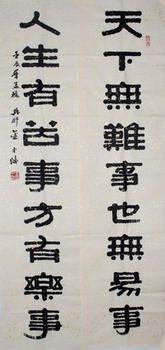 天下無難事也無易事
人生有苦事方有樂事